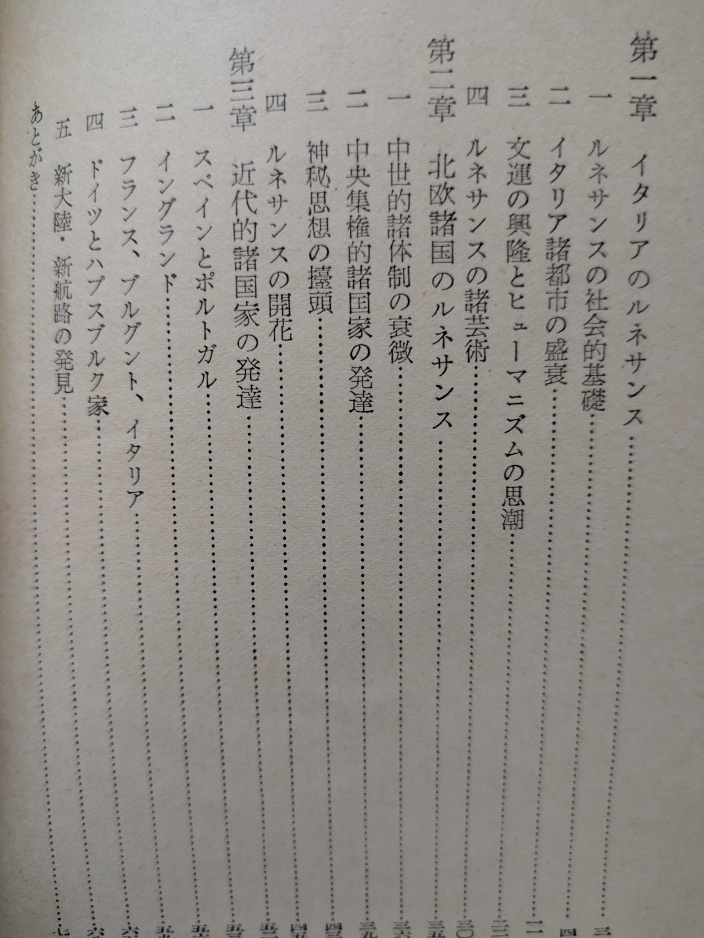 第一章 イタリアのルネサンス
一 ルネサンスの社会的基礎
二 イタリア諸都市の盛衰
三 文運の興隆とヒューマニズムの思潮
四 ルネサンスの諸芸術
第二章 北欧諸国のルネサンス
一 中世的諸体制の衰微
二 中央集権的諸国家の発達
三 神秘思想の擡頭
四 ルネサンスの開花
第三章 近代的諸国家の発達
一 スペインとポルトガル
二 イングランド
三 フランス、ブルグント、イタリア
四 ドイツとハプスブルク家
五 新大陸・新航路の発見
あとがき